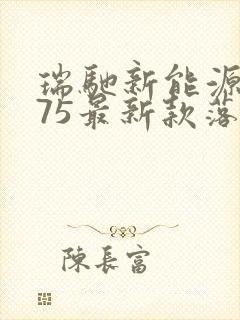 瑞馳新能源
75最新款落
陳長富